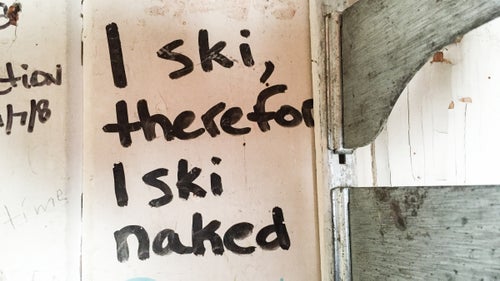 I ski,
therefor
I ski
naked
ction
/7/8
time